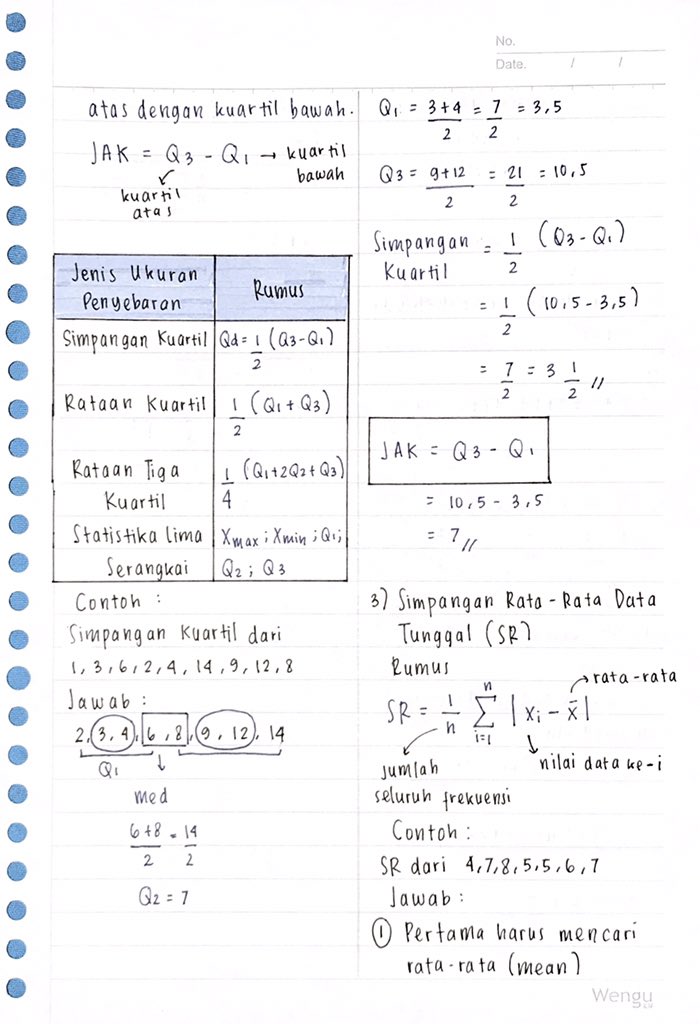 No.
Date. / /
atas dengan kuartil bawah.
JAK = Q3 - Q1 → kuartil
bawah
kuartil
atas
Jenis Ukuran
Penyebaran
Rumus
Simpangan Kuartil Qd = 1/2 (Q3-Q1)
Rataan Kuartil 1/2 (Q1 + Q3)
Rataan Tiga
Kuartil
1/4 (Q1+2Q2+Q3)
Statistika Lima Xmax ; Xmin ; Q1;
Serangkai Q2 ; Q3
Contoh :
Simpangan Kuartil dari
1, 3, 6, 2, 4, 14, 9, 12, 8
Jawab :
2, 3, 4, 6, 8, 9, 12, 14
Q1 ↓
med
6+8/2 = 14/2
Q2 = 7
Q1 = 3+4/2 = 7/2 = 3,5
Q3 = 9+12/2 = 21/2 = 10,5
Simpangan
Kuartil
= 1/2 (Q3-Q1)
= 1/2 (10,5 - 3,5)
= 7/2 = 3 1/2 //
JAK = Q3 - Q1
= 10,5 - 3,5
= 7 //
3) Simpangan Rata-Rata Data
Tunggal (SR)
Rumus
→ rata-rata
SR = 1/n n Σ i=1 | xi - x̄ |
nilai data ke-i
jumlah
seluruh frekuensi
Contoh :
SR dari 4,7,8,5,5,6,7
Jawab :
① Pertama harus mencari
rata-rata (mean)
Wengu